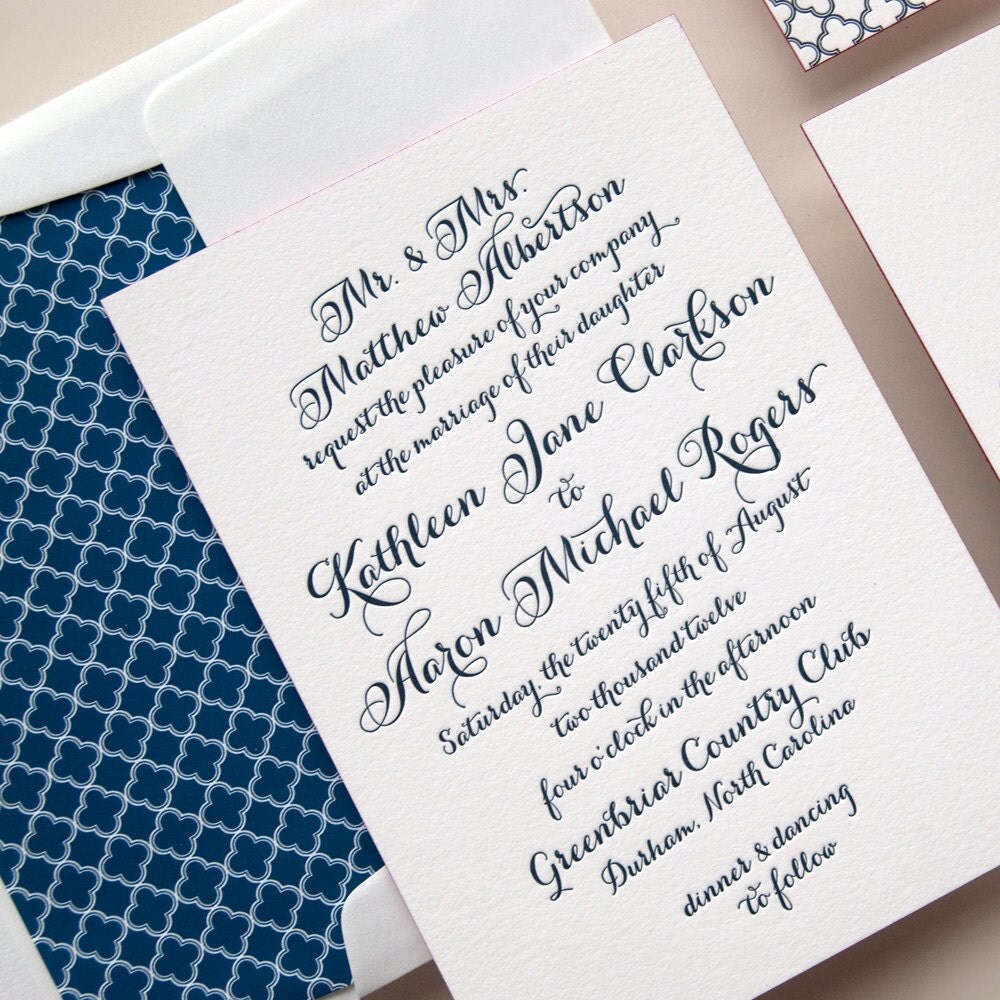 Mr. & Mrs.
Matthew Albertson
request the pleasure of your company
at the marriage of their daughter
Kathleen Jane Clarkson
to
Aaron Michael Rogers
Saturday, the twenty fifth of August
two thousand twelve
four o'clock in the afternoon
Greenbriar Country Club
Durham, North Carolina
dinner & dancing
to follow